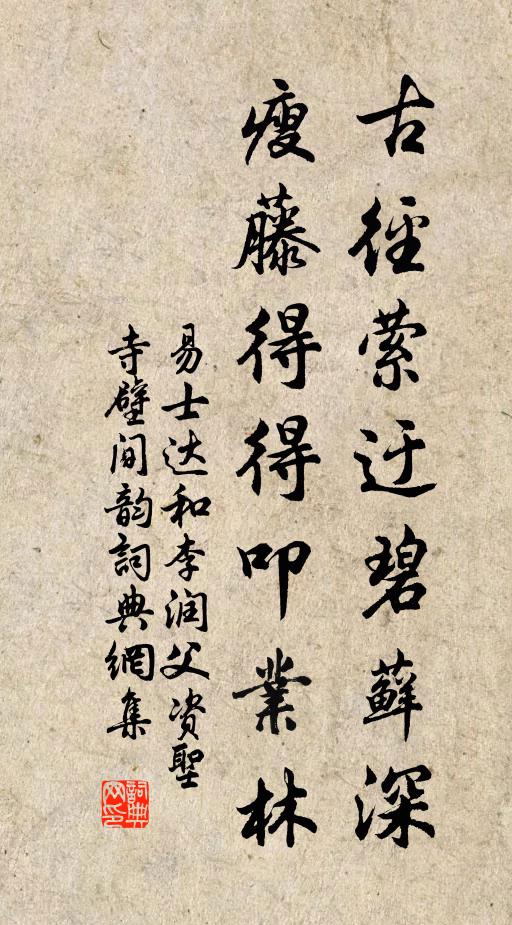 古徑萦迂碧蘚深
瘦藤得得叩業林
易士达和李润父资聖
寺壁间韵詞典網集
詞典
网印